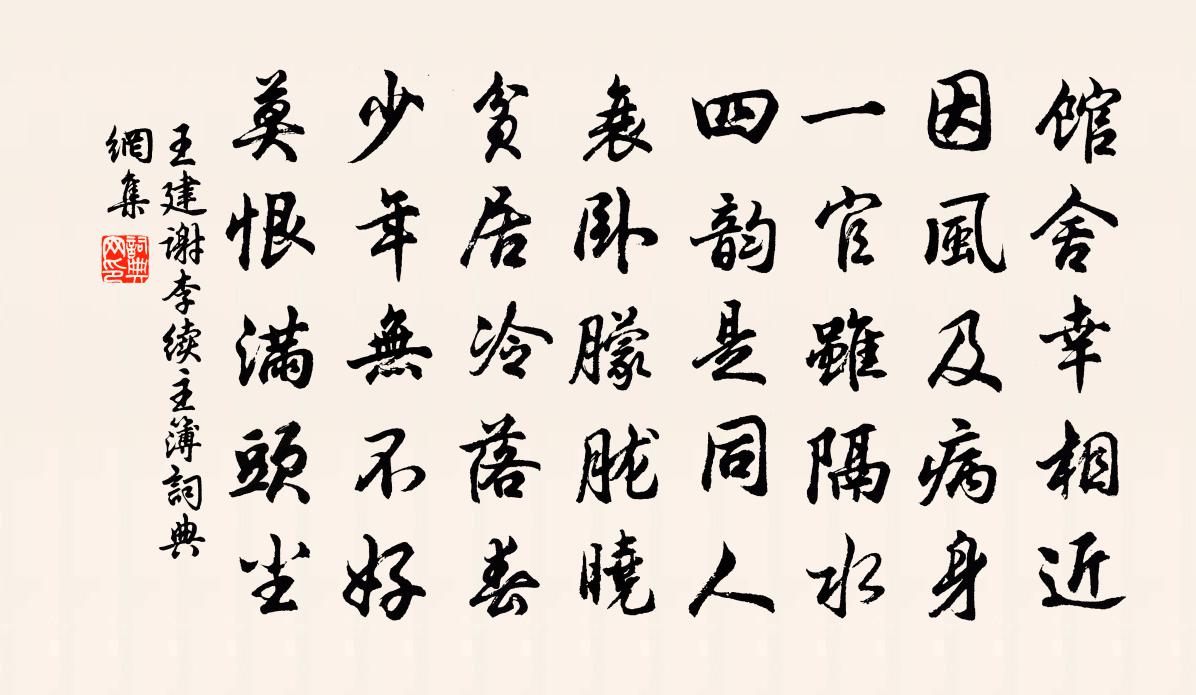 館舍幸相近
因風及病身
一官雖隔水
四韵是同人
衰卧朦朧曉
貧居冷落春
少年無不好
莫恨滿頭尘
王建謝李續主簿詞典
網集
詞典網印